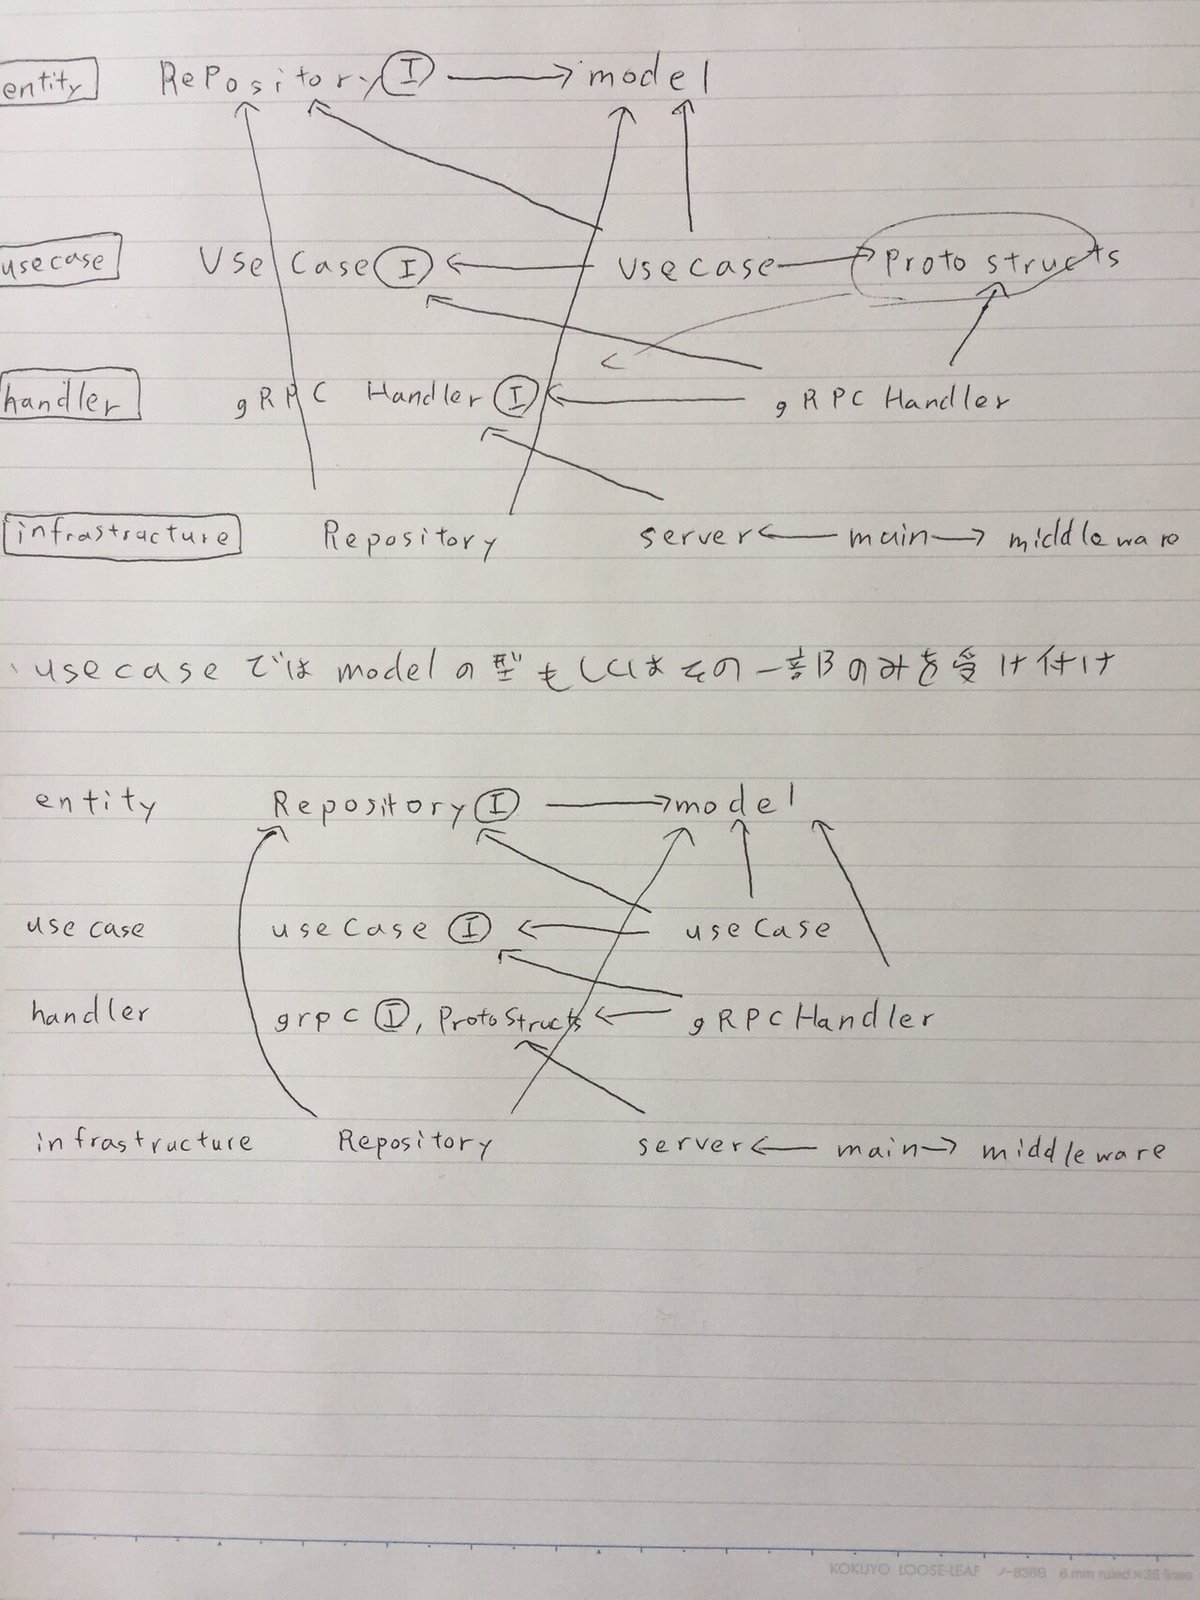 entity Repository I → model
usecase UseCase I ← usecase → Proto structs
handler gRPC Handler I ← gRPC Handler
infrastracture Repository server ← main → middleware
usecase では model の型もしくはその一部のみを受け付け
entity Repository I → model
use case useCase I ← useCase
handler grpc I, ProtoStructs ← gRPC Handler
infrastructure Repository server ← main → middleware
KOKUYO LOOSE-LEAF ノ-836B 6 mm ruled×36 lines